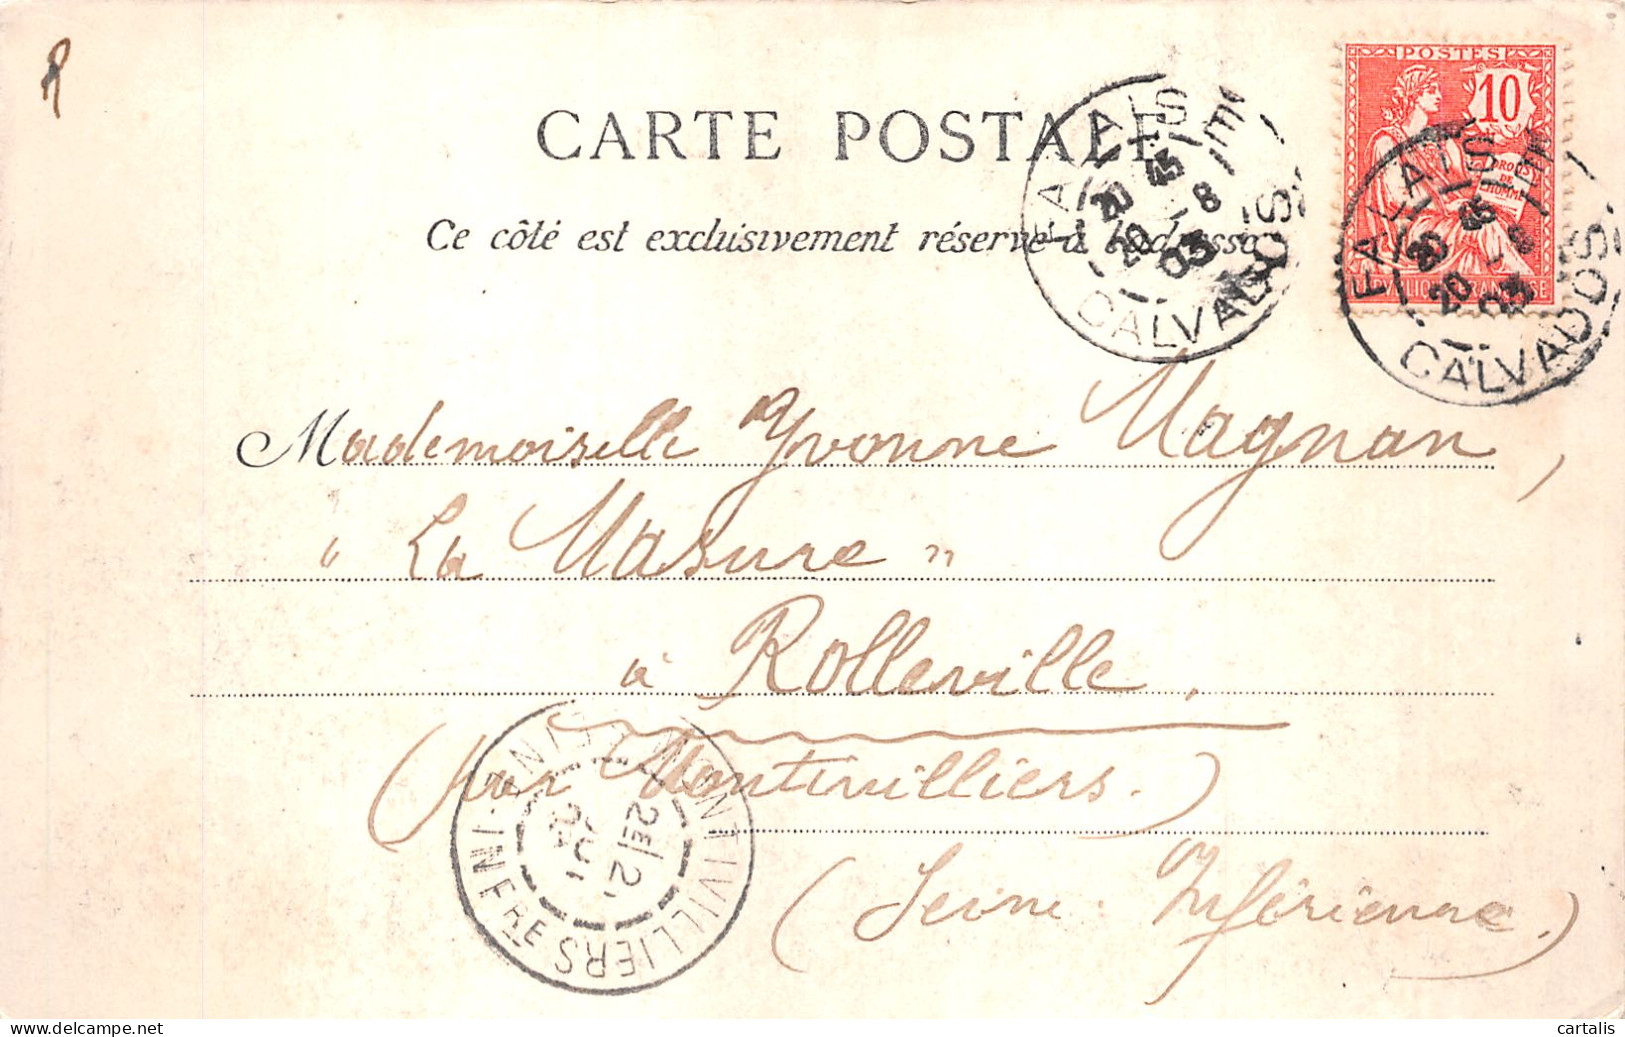 POSTES
10
DROITS
DE
L'HOMME
CARTE POSTALE
Ce côté est exclusivement réservé à l'adresse
FALAISE
20 45
20 -8
03
CALVADOS
FALAISE
20 45
20 -8
03
CALVADOS
Mademoiselle Yvonne Magnan,
"La Masure"
à Rolleville,
(par Montivilliers.)
(Seine Inférieure.)
MONTIVILLIERS
SEINE-INFRE
2E
21
delcampe.net
cartalis